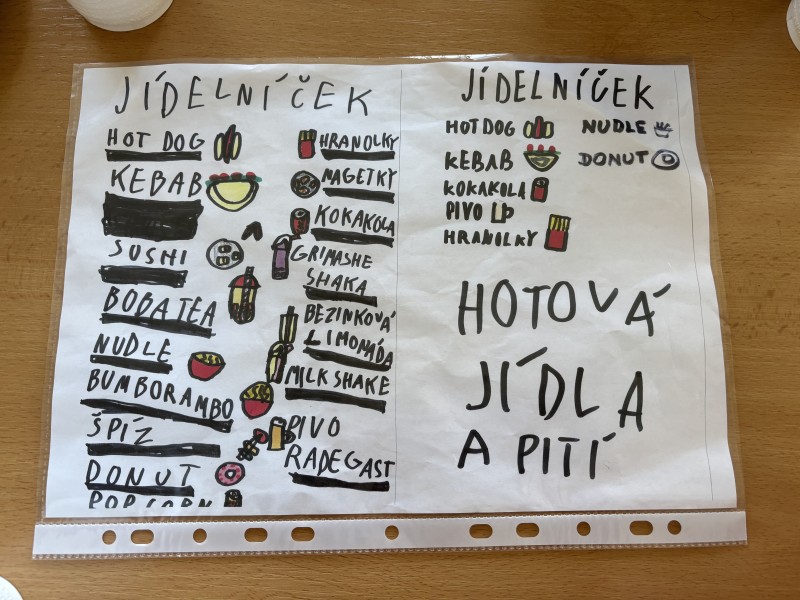 JÍDELNÍČEK
HOT DOG
KEBAB
SUSHI
BOBATEA
NUDLE
BUMBORAMBO
ŠPÍZ
DONUT
POPCORN
HRANOLKY
MAGETKY
KOKAKOLA
GRIMASHE
SHAKA
BEZINKOVÁ
LIMONÁDA
MILKSHAKE
PIVO
RADEGAST
JÍDELNÍČEK
HOTDOG
KEBAB
KOKAKOLA
PIVO
HRANOLKY
NUDLE
DONUT
HOTOVÁ
JÍDLA
A PITÍ